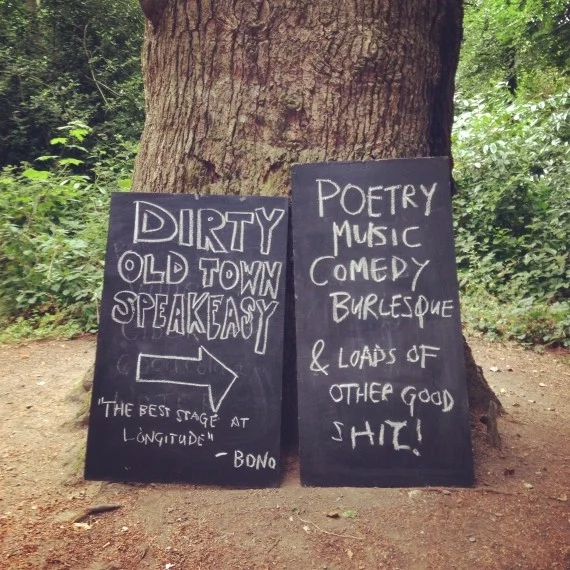 DIRTY
OLD TOWN
SPEAKEASY
"THE BEST STAGE AT
LONGITUDE"
- BONO
POETRY
MUSIC
COMEDY
BURLESQUE
& LOADS OF
OTHER GOOD
SHIT!